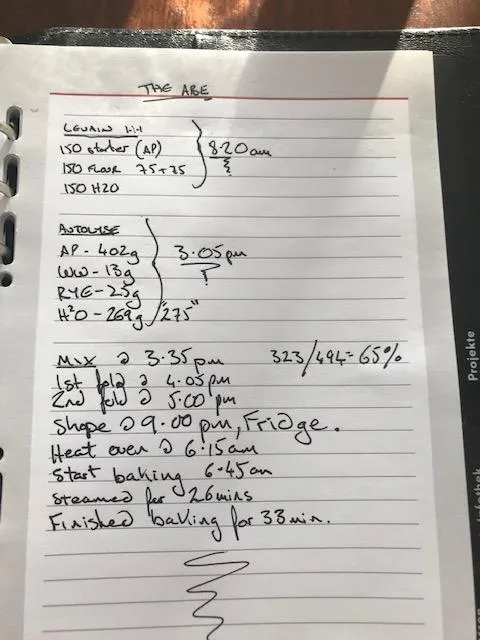 THE ABE
LEVAIN 1:1:1
150 starter (AP)
150 FLOUR 75+75
150 H2O
8.20 am
AUTOLYSE
AP - 402g
WW - 13g
RYE - 25g
H²O - 269g "275"
3.05 pm
?
MIX @ 3.35 pm 323/494 = 65%
1st fold @ 4.05 pm
2nd fold @ 5.00 pm
Shape @ 9.00 pm, Fridge.
Heat oven @ 6.15 am
Start baking 6.45 am
Steamed for 26 mins
Finished baking for 33 min.
Projekte